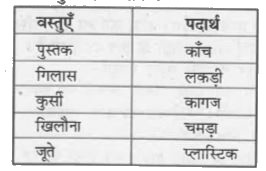 वस्तुएँ पदार्थ
पुस्तक काँच
गिलास लकड़ी
कुर्सी कागज
खिलौना चमड़ा
जूते प्लास्टिक